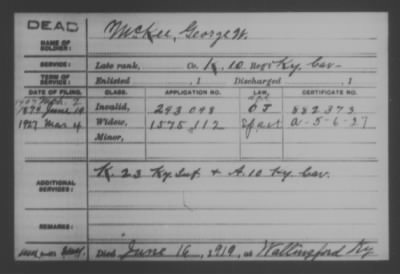 DEAD
NAME OF SOLDIER: McKee, George W.
SERVICE: Late rank, Co. K, 10 Reg't Ky. Cav.
TERM OF SERVICE: Enlisted , 1 Discharged , 1
DATE OF FILING. CLASS. APPLICATION NO. LAW. CERTIFICATE NO.
2
June 14 Invalid, 293098 O J 882373
1927 Mar 4 Widow, 1575,112 A-5-6-27
Minor,
ADDITIONAL SERVICES: K. 23 Ky Inf + A. 10 Ky. Cav.
REMARKS:
Died June 16, 1919, at Wallingford Ky